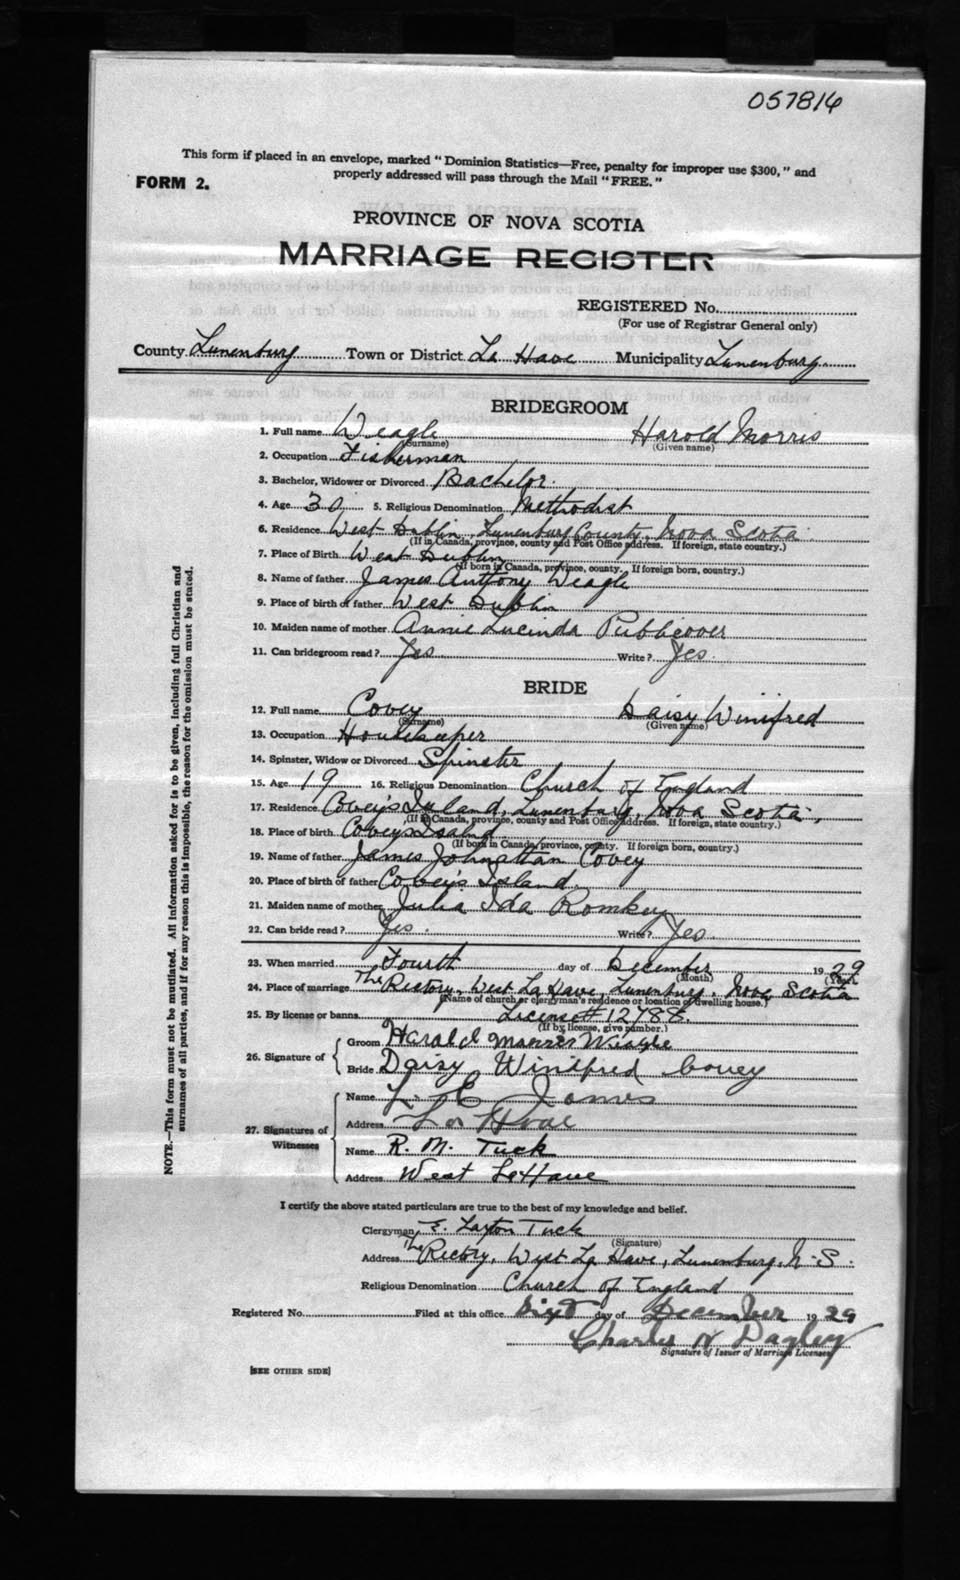 057816
This form if placed in an envelope, marked "Dominion Statistics—Free, penalty for improper use $300," and
FORM 2. properly addressed will pass through the Mail "FREE."
PROVINCE OF NOVA SCOTIA
MARRIAGE REGISTER
REGISTERED No.
(For use of Registrar General only)
County Lunenburg Town or District La Have Municipality Lunenburg
BRIDEGROOM
1. Full name Weagle Harold Morris
(Surname) (Given name)
2. Occupation Fisherman
3. Bachelor, Widower or Divorced Bachelor.
4. Age 30 5. Religious Denomination Methodist
6. Residence West Dublin, Lunenburg County, Nova Scotia
(If in Canada, province, county and Post Office address. If foreign, state country.)
7. Place of Birth West Dublin
(If born in Canada, province, county. If foreign born, country.)
8. Name of father James Anthony Weagle
9. Place of birth of father West Dublin
10. Maiden name of mother Annie Lucinda Publicover
11. Can bridegroom read? Yes Write? Yes.
BRIDE
12. Full name Covey Daisy Winifred
(Surname) (Given name)
13. Occupation Housekeeper
14. Spinster, Widow or Divorced Spinster
15. Age 19 16. Religious Denomination Church of England
17. Residence Covey's Island, Lunenburg, Nova Scotia,
(If in Canada, province, county and Post Office address. If foreign, state country.)
18. Place of birth Coveys Island
(If born in Canada, province, county. If foreign born, country.)
19. Name of father James Johnathan Covey
20. Place of birth of father Covey's Island.
21. Maiden name of mother Julia Ida Romkey
22. Can bride read? Yes. Write? Yes.
23. When married Fourth day of December 1929
(Month) (Year)
24. Place of marriage The Rectory, West La Have, Lunenburg, Nova Scotia
(Name of church or clergyman's residence or location of dwelling house.)
25. By license or banns License # 12788.
(If by license, give number.)
26. Signature of
Groom Harold Weagle
Bride Daisy Winifred Covey
27. Signatures of Witnesses
Name L. C. James
Address La Have
Name R. M. Tuck
Address West LaHave
I certify the above stated particulars are true to the best of my knowledge and belief.
Clergyman E. Laxton Tuck
(Signature)
Address The Rectory, West La Have, Lunenburg, N.S.
Religious Denomination Church of England
Registered No. Filed at this office day of December 1929
Charles Dagley
Signature of Issuer of Marriage Licenses
[SEE OTHER SIDE]
NOTE.—This form must not be mutilated. All information asked for is to be given, including full Christian and
surnames of all parties, and if for any reason this is impossible, the reason for the omission must be stated.